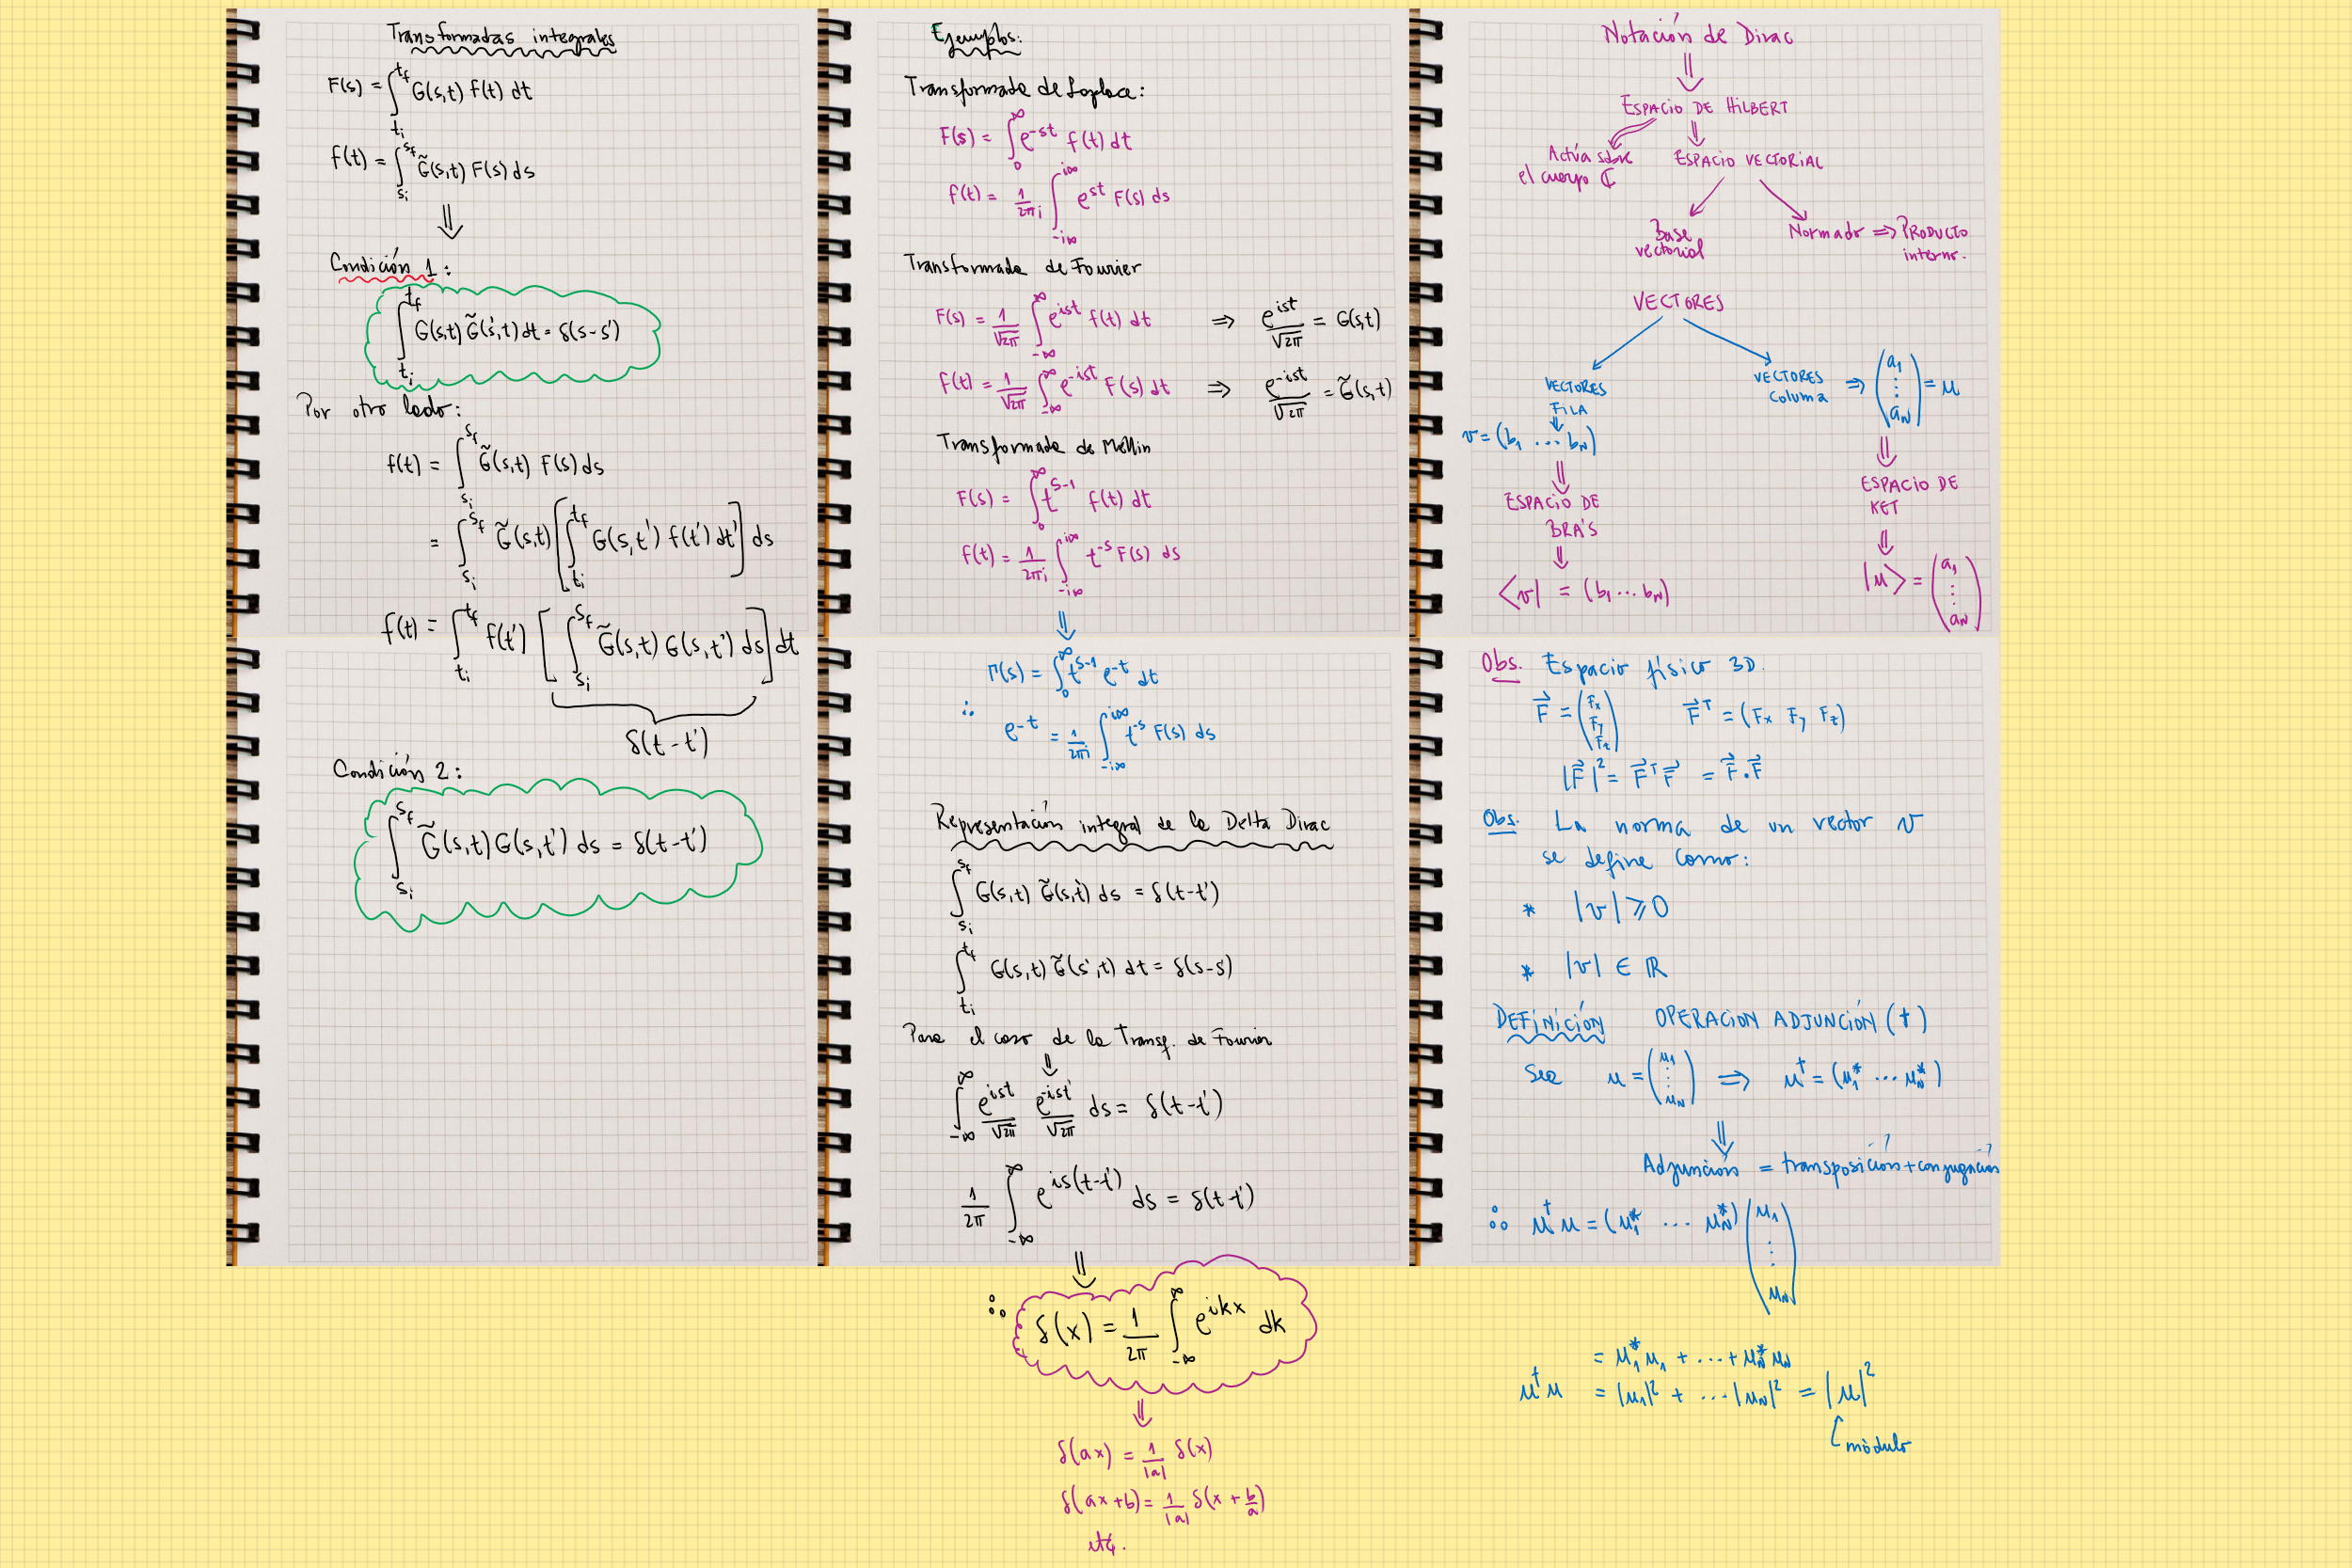 Transformadas integrales
F(s) = ∫_{t_i}^{t_f} G(s,t) f(t) dt
f(t) = ∫_{s_i}^{s_f} G̃(s,t) F(s) ds
⇓
Condición 1:
∫_{t_i}^{t_f} G(s,t) G̃(s',t) dt = δ(s-s')
Por otro lado:
f(t) = ∫_{s_i}^{s_f} G̃(s,t) F(s) ds
= ∫_{s_i}^{s_f} G̃(s,t) [∫_{t_i}^{t_f} G(s,t') f(t') dt'] ds
f(t) = ∫_{t_i}^{t_f} f(t') [∫_{s_i}^{s_f} G̃(s,t) G(s,t') ds] dt
δ(t-t')
Condición 2:
∫_{s_i}^{s_f} G̃(s,t) G(s,t') ds = δ(t-t')
Ejemplos:
Transformada de Laplace:
F(s) = ∫_0^∞ e^{-st} f(t) dt
f(t) = 1/2πi ∫_{-i∞}^{i∞} e^{st} F(s) ds
Transformada de Fourier
F(s) = 1/√2π ∫_{-∞}^{∞} e^{ist} f(t) dt ⇒ e^{ist}/√2π = G(s,t)
f(t) = 1/√2π ∫_{-∞}^{∞} e^{-ist} F(s) dt ⇒ e^{-ist}/√2π = G̃(s,t)
Transformada de Mellin
F(s) = ∫_0^∞ t^{s-1} f(t) dt
f(t) = 1/2πi ∫_{-i∞}^{i∞} t^{-s} F(s) ds
⇓
Γ(s) = ∫_0^∞ t^{s-1} e^{-t} dt
∴ e^{-t} = 1/2πi ∫_{-i∞}^{i∞} t^{-s} F(s) ds
Representación integral de la Delta Dirac
∫_{s_i}^{s_f} G(s,t) G̃(s,t') ds = δ(t-t')
∫_{t_i}^{t_f} G(s,t) G̃(s',t) dt = δ(s-s)
Para el caso de la Transf. de Fourier
⇓
∫_{-∞}^{∞} e^{ist}/√2π e^{-ist'}/√2π ds = δ(t-t')
1/2π ∫_{-∞}^{∞} e^{is(t-t')} ds = δ(t-t')
⇓
∴ δ(x) = 1/2π ∫_{-∞}^{∞} e^{ikx} dk
⇓
δ(ax) = 1/|a| δ(x)
δ(ax+b) = 1/|a| δ(x + b/a)
Notación de Dirac
⇓
ESPACIO DE HILBERT
Actúa sobre ESPACIO VECTORIAL
el cuerpo ℂ
Base Normado ⇒ PRODUCTO
vectorial interno.
VECTORES
VECTORES FILA
v = (b₁ ... b_N)
⇓
ESPACIO DE
BRA'S
⇓
⟨v| = (b₁ ... b_N)
VECTORES
Columa ⇒ (a₁ ⋮ a_N) = u
⇓
ESPACIO DE
KET
⇓
|u⟩ = (a₁ ⋮ a_N)
Obs. Espacio físico 3D.
F⃗ = (Fx Fy Fz) F⃗^T = (Fx Fy Fz)
|F⃗|² = F⃗^T F⃗ = F⃗·F⃗
Obs. La norma de un vector v
se define como:
* |v| ⩾ 0
* |v| ∈ ℝ
DEFINICIÓN OPERACIÓN ADJUNCIÓN (†)
Sea u = (u₁ ⋮ u_N) ⇒ u† = (u₁* ... u_N*)
⇓
Adjunción = transposición + conjugación
∴ u†u = (u₁* ... u_N*) (u₁ ⋮ u_N)
= u₁*u₁ + ... + u_N*u_N
u†u = |u₁|² + ... |u_N|² = |u|²
módulo